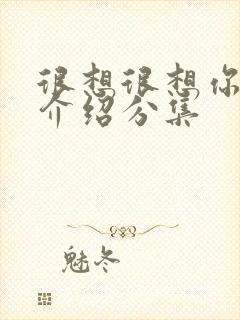 很想很想你
介绍分集
魅冬